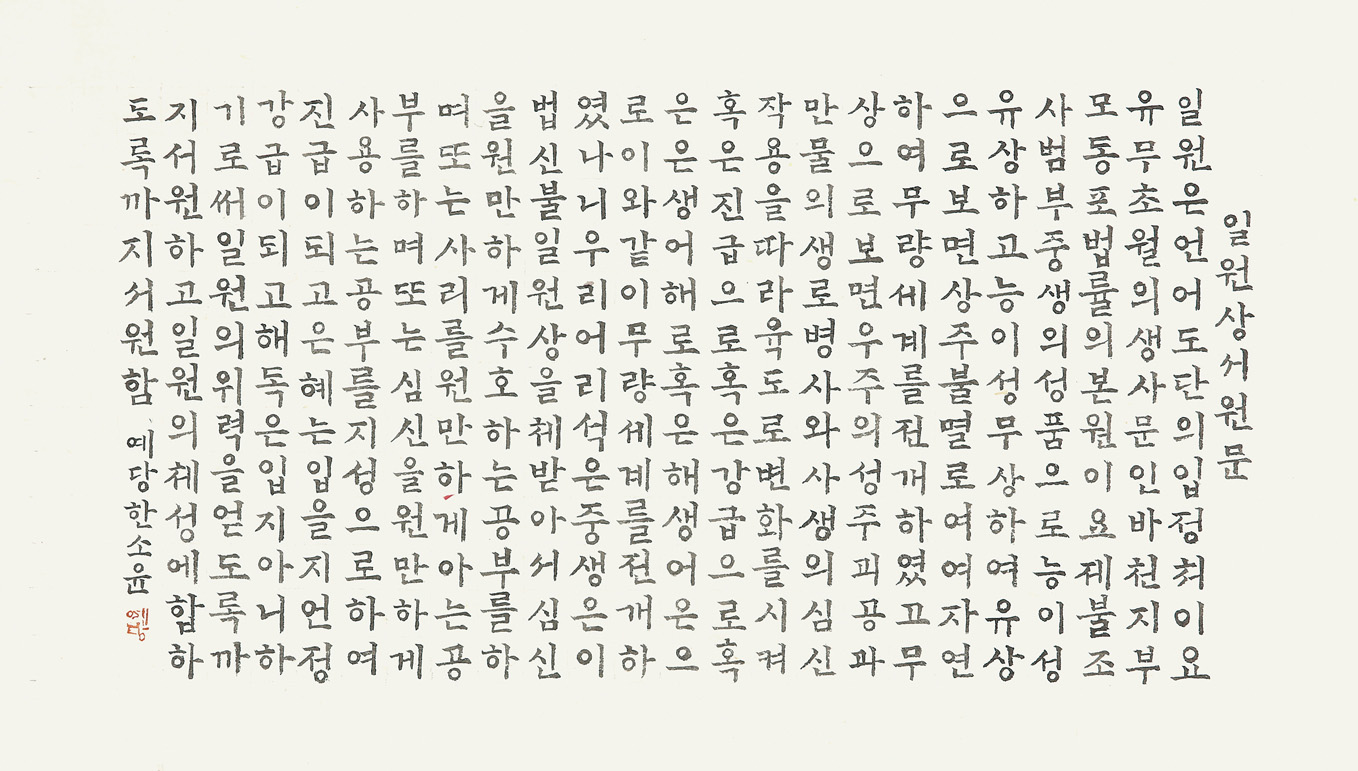 일원상서원문
일원은언어도단의입정처이요
유무초월의생사문인바천지부
모동포법률의본원이요제불조
사범부중생의성품으로능이성
유상하고능이성무상하여유상
으로보면상주불멸로여여자연
하여무량세계를전개하였고무
상으로보면우주의성주괴공과
만물의생로병사와사생의심신
작용을따라육도로변화를시켜
혹은진급으로혹은강급으로혹
은은생어해로혹은해생어은으
로이와같이무량세계를전개하
였나니우리어리석은중생은이
법신불일원상을체받아서심신
을원만하게수호하는공부를하
며또는사리를원만하게아는공
부를하며또는심신을원만하게
사용하는공부를지성으로하여
진급이되고은혜는입을지언정
강급이되고해독은입지아니하
기로써일원의위력을얻도록까
지서원하고일원의체성에합하
도록까지서원함 예당한소윤
예당